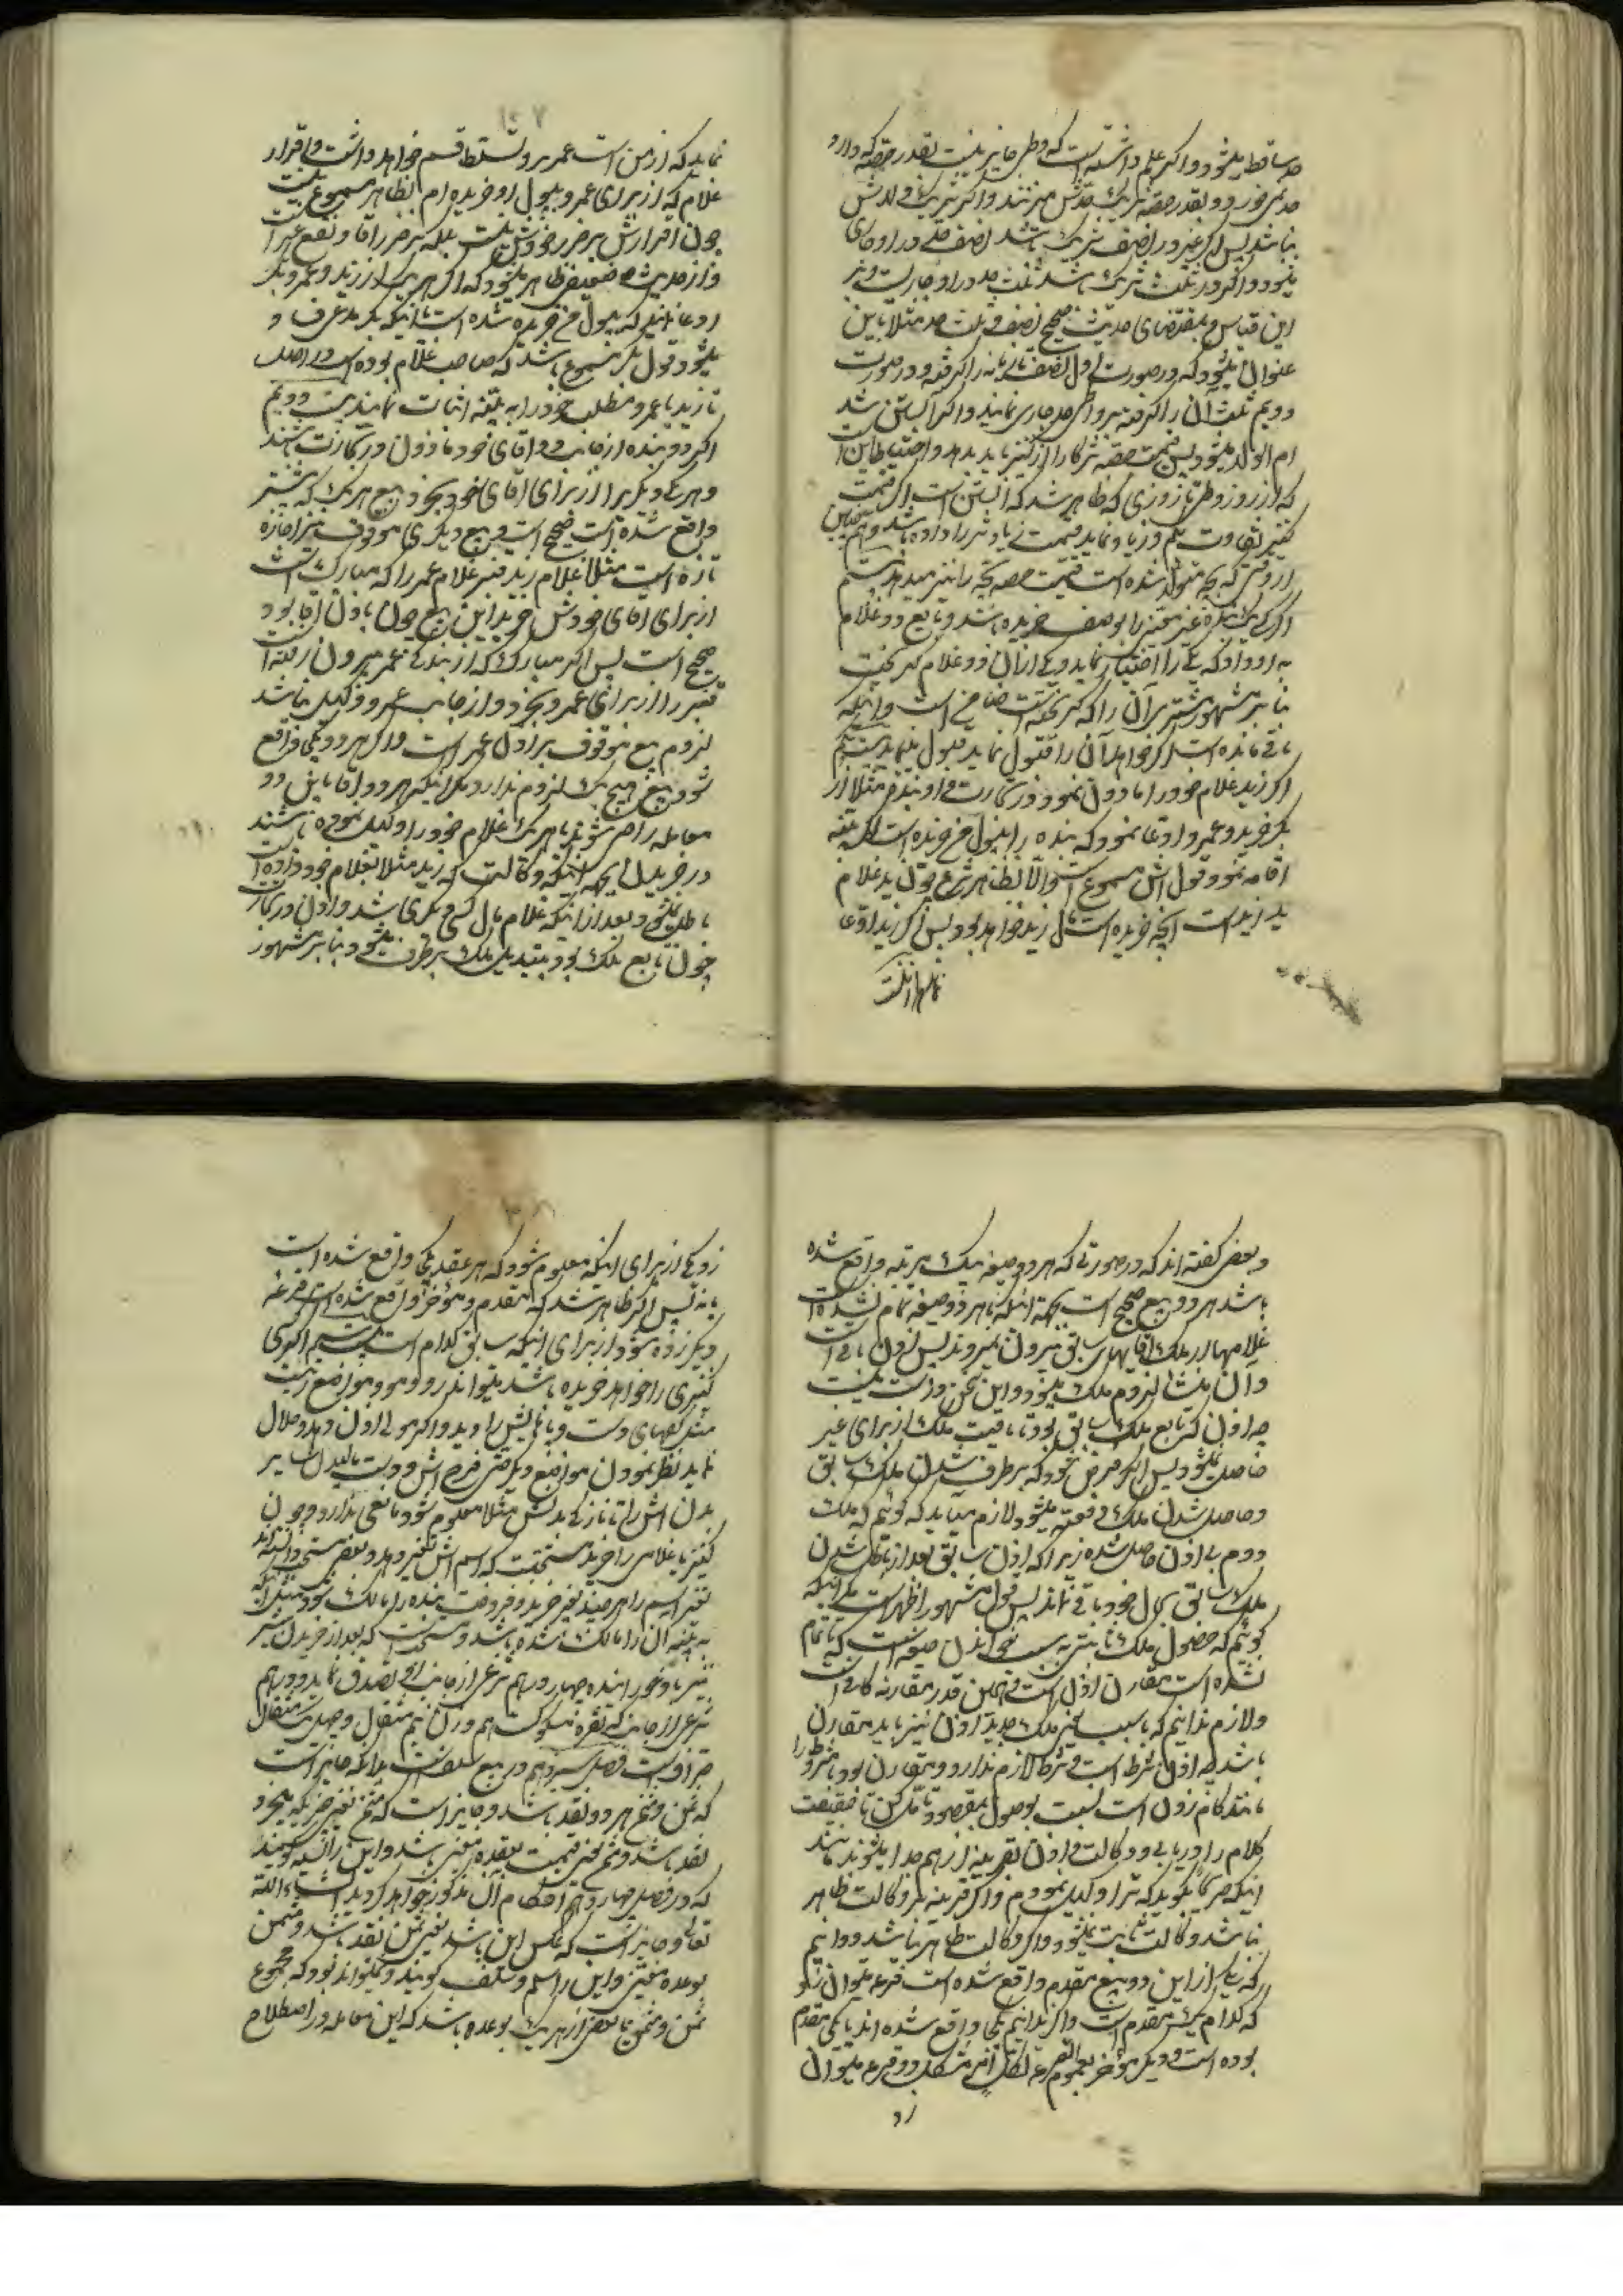 حد ساقط میشود و اگر علم داشته است که وطی جایز نیست بقدر حصه که دارد
حد نمیخورد و بقدر حصه شریک حدش میزنند و اگر شریک
نباشد پس اگر غیر در نصف شریک باشد نصف حد در او جاری
میشود و اگر در ثلث شریک باشد ثلث حد در او جاریست و بر
این قیاس و بمقتضای حدیث صحیح نصف و ثلث حد مثلا باین
عنوان میشود که در صورت اول نصف تازیانه را گرفته و در صورت
دویم ثلث آن را گرفته بر واطی حد جاری نمایند و اگر آبستن شد
ام الولد میشود پس قیمت حصه شرکا را از کنیز باید بدهد و احتیاط این است
که از روز وطی تا روزی که ظاهر شد که آبستن است اگر قیمت
کنیز تفاوت بکم و زیاد نماید قیمت زیادتر را داده باشد و همچنین
از وقتی که بچه متولد شده است قیمت حصه بچه را نیز میدهد بیستم
اگر کسی بنده غیر معین را بوصف خریده باشد و بایع دو غلام
به او داد که یکی را اختیار نماید و یکی از آن دو غلام گریخت
بنا بر مشهور مشتری آن را که گریخته است ضامن است و آنکه
باقی مانده است اگر خواهد آن را قبول نماید قبول مینماید بیست و یکم
اگر زید غلام خود را مأذون نمود در تجارت و او بنده مثلا از
بکر خرید و عمرو ادعا نمود که بنده را بپول من خریده است اگر بینه
اقامه نمود قول اش مسموع است و الا بظاهر شرع چون ید غلام
ید زید است آنچه خریده است مال زید خواهد بود پس اگر زید ادعا
نماید که از من است
نماید که از من است عمرو تسلط قسم خواهد داشت و اقرار
غلام که از برای عمرو و بپول او خریده ام بظاهر مسموع نیست
چون اقرارش بر ضرر خودش نیست بلکه بر ضرر آقا و نفع غیر است
و از حدیث ضعیف ظاهر میشود که اگر هر یک از زید و عمرو و بکر
ادعا نمایند که بپول من خریده شده است
میشود قول بکر مسموع باشد که صاحب غلام بوده است در اصل
تا زید یا عمرو مطلب خود را به بینه اثبات نمایند بیست و دویم
اگر دو بنده از جانب دو آقای خود مأذون در تجارت باشند
و هر یکی دیگری را از برای آقای خود بخرد بیع هر یک که پیشتر
واقع شده است صحیح است و بیع دیگری موقوف بر اجازه
تازه است مثلا غلام زید قنبر غلام عمرو را که مبارک است
از برای آقای خودش خرید این بیع چون باذن آقا بود
صحیح است پس اگر مبارک که از بندگی عمرو بیرون رفته است
قنبر را از برای عمرو بخرد و از جانب عمرو وکیل نباشد
لزوم بیع موقوف بر اذن عمرو است و اگر هر دو یکی واقع
شود بیع هیچ یک لزوم ندارد مگر اینکه هر دو آقا باین دو
معامله راضی شوند یا هر یک غلام خود را وکیل نموده باشند
در خریدن بجهة اینکه وکالت که زید مثلا بغلام خود داده است
باطل نمیشود بعد از اینکه غلام مال کس دیگری شد و اذن در تجارت
چون تابع ملک بود بتبدیل ملک برطرف میشود و بنا بر مشهور
و بعضی گفته اند که در صورتی که هر دو صیغه بیک مرتبه واقع شده
باشد هر دو بیع صحیح است بجهة اینکه تا هر دو صیغه تمام نشده است
غلامها از ملک آقایهای سابق بیرون نمیروند پس اذن باقی است
و آن منشأ لزوم ملک میشود و این سخن درست نیست
چه اذن که تابع ملک سابق بود تا باقیست ملک از برای غیر
حاصل نمیشود پس اگر فرض شود که برطرف شدن ملک سابق
و حاصل شدن ملک دفعة میشود لازم میاید که گوئیم که ملک
دوم بی اذن حاصل شده زیرا که اذن سابق بعد از باطل شدن
ملک سابق بحال خود باقی نماند پس قول مشهور اظهر است مگر اینکه
گوئیم که حصول ملک مشتری بسبب خواندن صیغه است که تا تمام
نشده است مقارن اذن است و همین قدر مقارنه کافی است
و لازم ندانیم که با سبب یعنی ملک جدید اذن نیز باید مقارن
باشد چه اذن شرط است و شرط لازم ندارد مقارن بودن مشروط را
مانند گام زدن است نسبت بوصول بمقصود تأمل کن تا حقیقت
کلام را دریابی و وکالت و اذن بقرینه از هم جدا میشوند مانند
اینکه صریحا بگوید که ترا وکیل نمودم و اگر قرینه بر وکالت ظاهر
نباشد وکالت ثابت نمیشود و اگر وکالت ظاهر نباشد و دانیم
که یکی از این دو بیع مقدم واقع شده است قرعه میتوان زد
که کدام یک مقدم است و اگر ندانیم یکی واقع شده اند یا یکی مقدم
بوده است و دیگر مؤخر بعموم القرعة لکل امر مشکل دو قرعه میتوان
زد
زد یکی از برای اینکه معلوم شود که هر عقد یکی واقع شده است
یا نه پس اگر ظاهر شد که مقدم و مؤخر واقع شده است قرعه
دیگر زده شود از برای اینکه سابق کدام است بیست و سیم اگر کسی
کنیزی را خواهد خریده باشد میتواند رو و مو و مواضع زینت
مثل کفهای دست و پا نمایش را دید و اگر مولی اذن دهد و حلال
نماید نظر نمودن مواضع دیگر حتی فرج اش و دست مالیدن سایر
بدن اش را تا نازکی بدنش مثلا معلوم شود مانعی ندارد و چون
کنیز یا غلامی را خرید مستحبست که اسم اش تغییر دهد و بعضی مستحب دانسته اند
تغییر اسم را هر چند بغیر خرید و فروخت بنده را مالک شود مثل آنکه
به بینه آن را مالک شده باشد و مستحب است که بعد از خریدن شیر
شیرینی بخوراند و چهار درهم شرعی از جانب او تصدق نماید و درهم
شرعی از جائی که نقره مسکوک است هم وزن نیم مثقال و صدیک مثقال
صرافیست فصل سیزدهم در بیع سلف است بدانکه جایز است
که ثمن و مثمن هر دو نقد باشد و جایز است که مثمن یعنی چیزی که میخرد
نقد باشد و ثمن یعنی قیمت بوعده معین باشد و این را نسیه گویند
که در فصل چهاردهم احکام آن مذکور خواهد گردید انشاء الله
تعالی و جایز است که عکس این باشد یعنی ثمن نقد باشد و مثمن
بوعده معین و این را سلم و سلف گویند و نمیتواند بود که مجموع
ثمن و مثمن یا بعضی از هر یک بوعده باشد که این معامله در اصطلاح